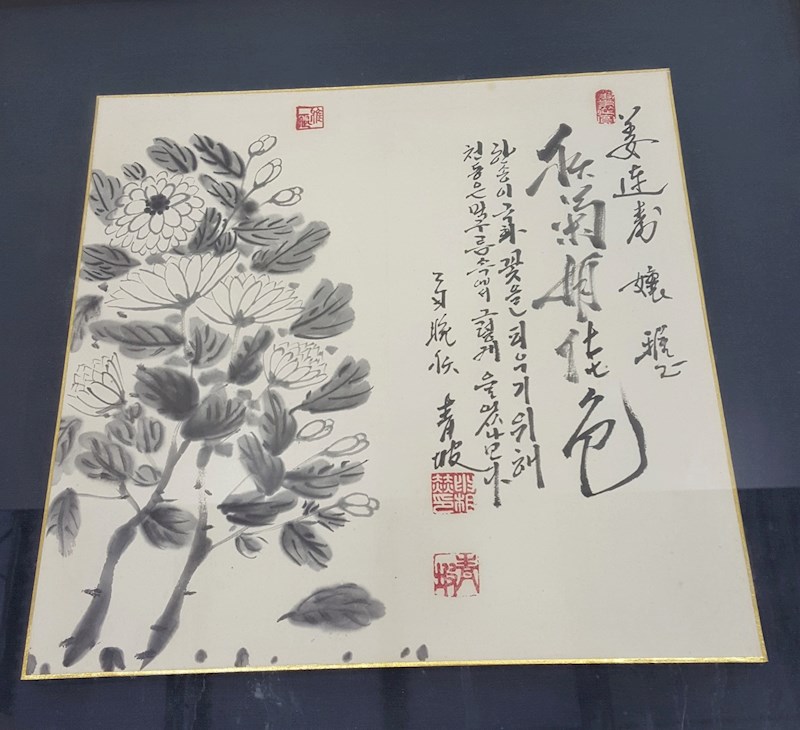 姜連壽 孃
秋菊有佳色
한송이 국화 꽃을 피우기 위해
천둥은 먹구름 속에 그렇게 울었나보다
晩秋 靑坡
靑坡